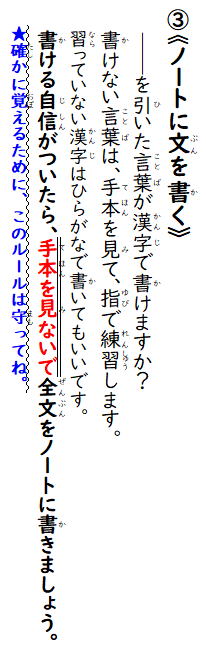 ③《ノートに文を書く》
――を引いた言葉が漢字で書けますか？
書けない言葉は、手本を見て、指で練習します。
習っていない漢字はひらがなで書いてもいいです。
書ける自信がついたら、手本を見ないで全文をノートに書きましょう。
★確かに覚えるために、このルールは守ってね。